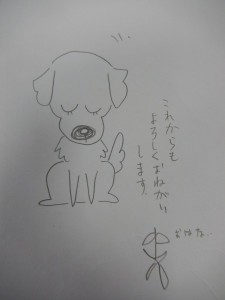 これからも
よろしくおねがい
します